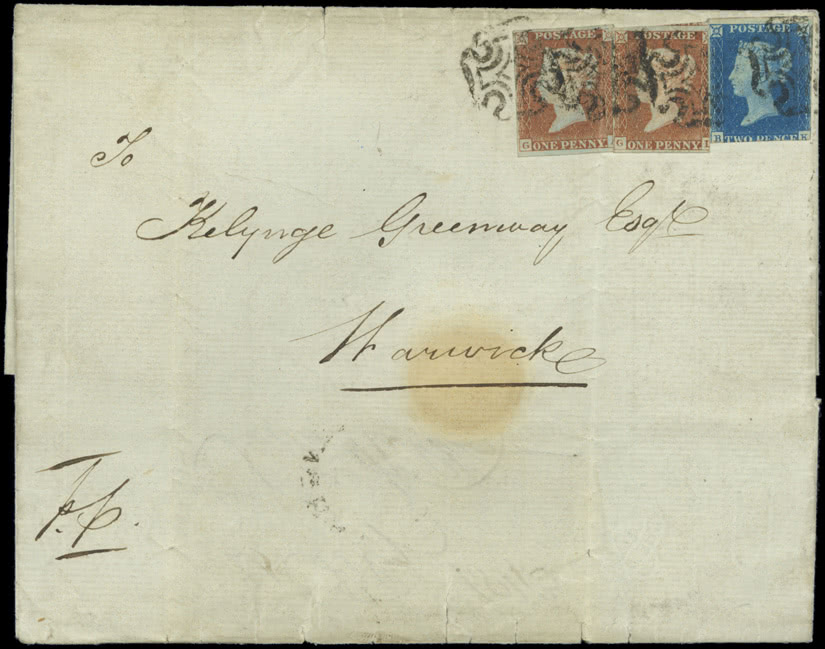 POSTAGE POSTAGE POSTAGE
G ONE PENNY G ONE PENNY I B TWO PENCE K
To
Kelynge Greenway Esqre
Warwick